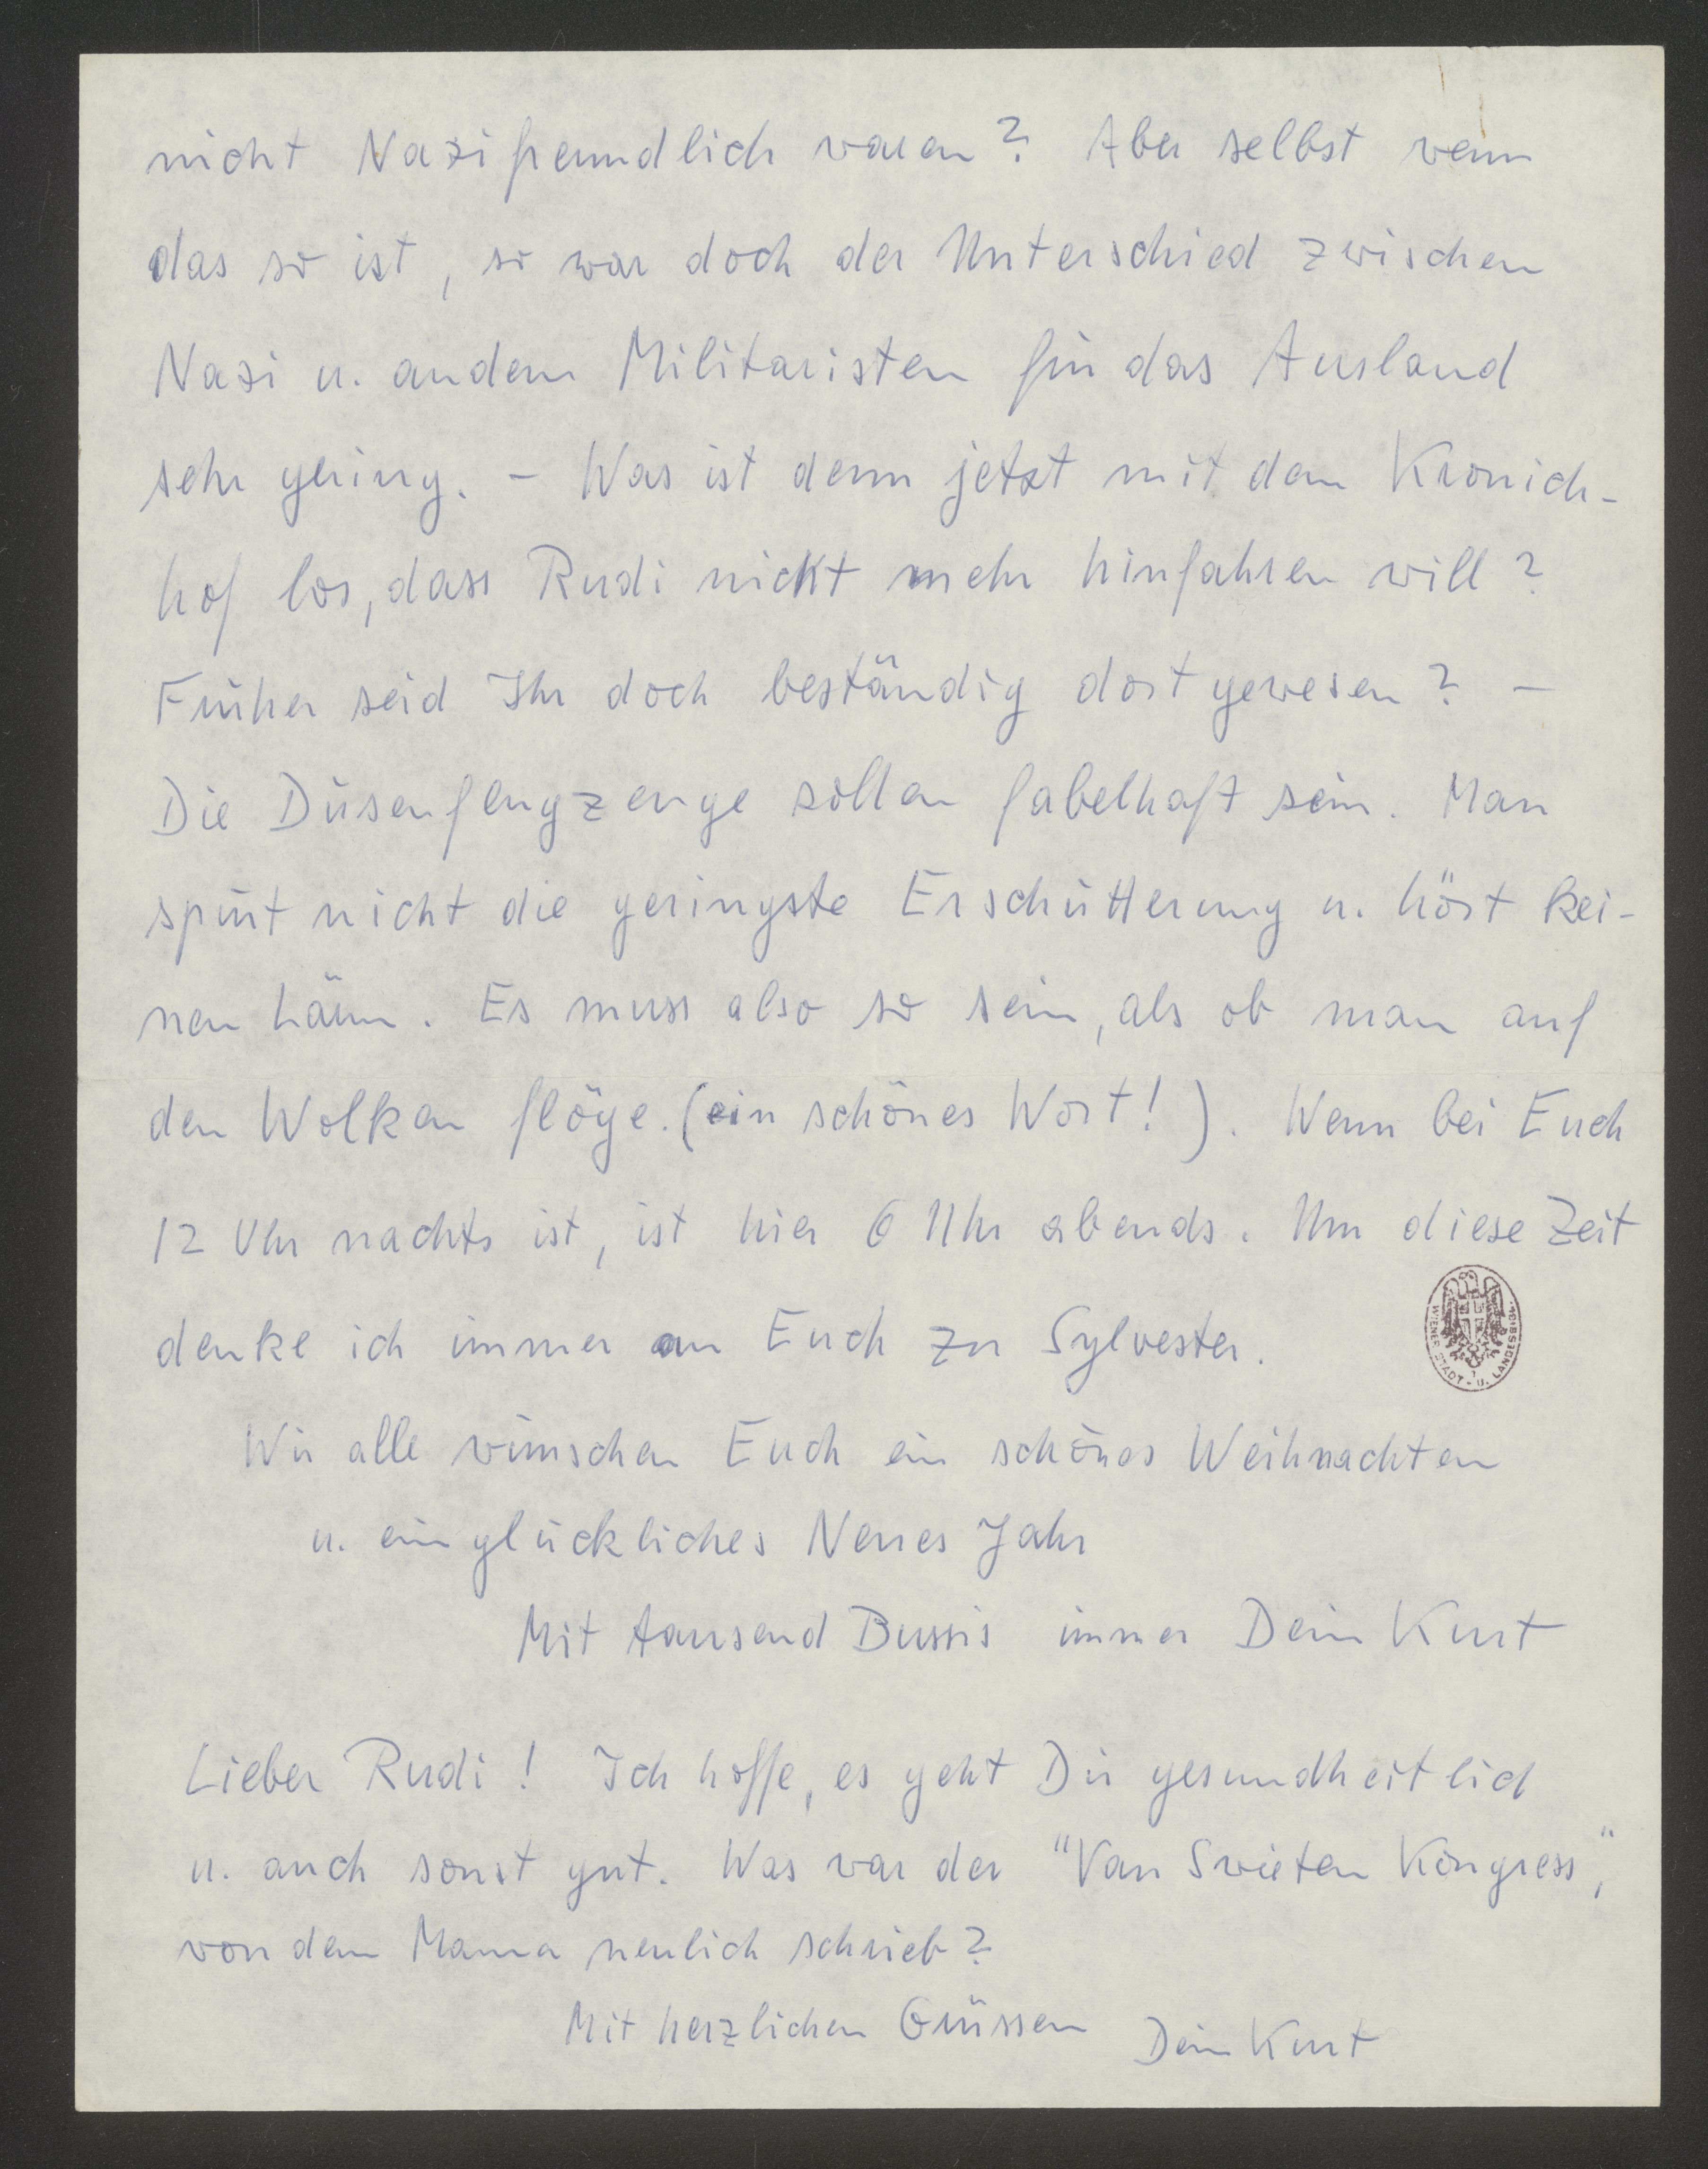 nicht Nazifreundlich waren? Aber selbst wenn
das so ist, so war doch der Unterschied zwischen
Nazi u. andern Militaristen für das Ausland
sehr gering. – Was ist denn jetzt mit dem Kronich-
hof los, dass Rudi nicht mehr hinfahren will?
Früher seid Ihr doch beständig dort gewesen? –
Die Düsenflugzeuge sollen fabelhaft sein. Man
spürt nicht die geringste Erschütterung u. hört kei-
nen Lärm. Es muss also so sein, als ob man auf
den Wolken flöge. (ein schönes Wort!). Wenn bei Euch
12 Uhr nachts ist, ist hier 6 Uhr abends. Um diese Zeit
denke ich immer an Euch zu Sylvester.
WIENER STADT- U. LANDESBIBL.
Wir alle wünschen Euch ein schönes Weihnachten
u. ein glückliches Neues Jahr
Mit tausend Bussis immer Dein Kurt
Lieber Rudi! Ich hoffe, es geht Dir gesundheitlich
u. auch sonst gut. Was war der "Van Swieten Kongress",
von dem Mama neulich schrieb?
Mit herzlichen Grüssen Dein Kurt